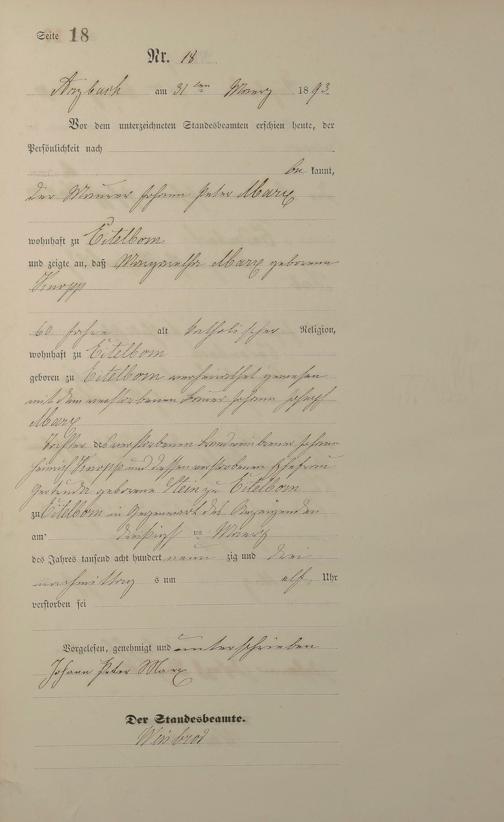 Seite 18
Nr. 18
Arzbach am 31 ten Maerz 1893.
Vor dem unterzeichneten Standesbeamten erschien heute, der
Persönlichkeit nach
be kannt,
der Maurer Johann Peter Marx
wohnhaft zu Eitelborn
und zeigte an, daß Margaretha Marx geborene
Knopp
60 Jahre alt katholischer Religion,
wohnhaft zu Eitelborn
geboren zu Eitelborn verheirathet gewesen
mit dem verstorbenen Johann Joseph
Marx
Tochter des verstorbenen Johann
Heinrich Knopp und dessen verstorbenen Ehefrau
Gertrude geborene Stein zu Eitelborn
zu Eitelborn in Gegenwart des Anzeigenden
am dreißigsten Maerz
des Jahres tausend acht hundert neun zig und drei
nachmittag s um elf Uhr
verstorben sei
Vorgelesen, genehmigt und unterschrieben
Johann Peter Marx
Der Standesbeamte.
Weinbrod